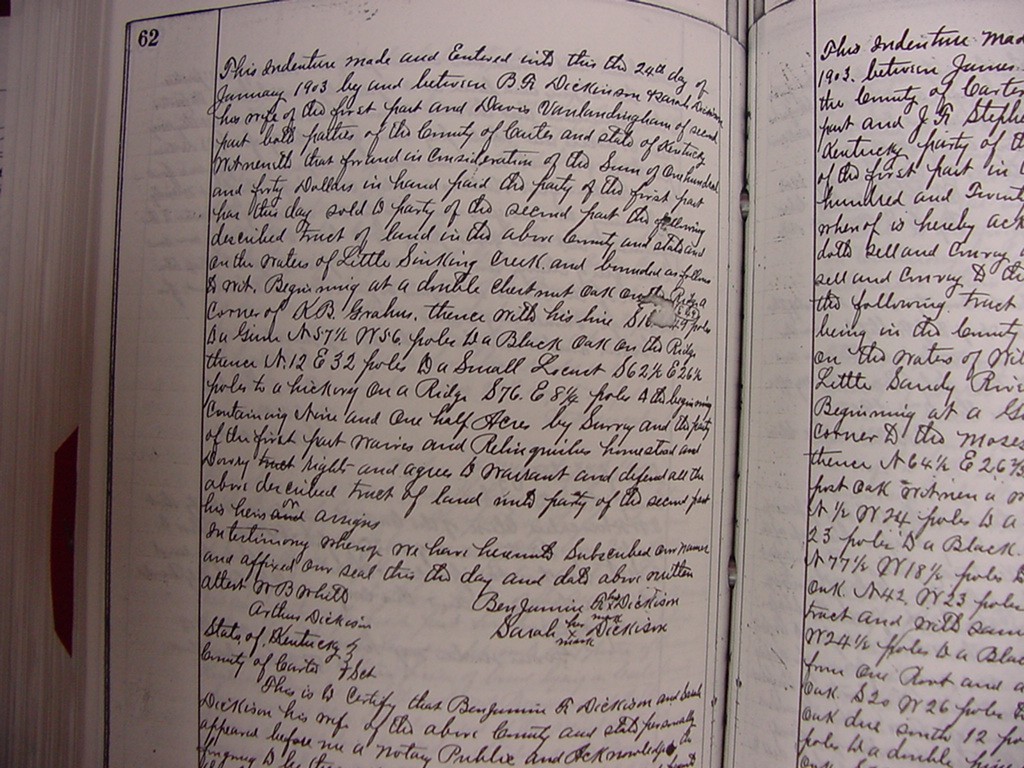 62
This Indenture made and Entered into this the 24th day of
January 1903 by and between B. R Dickinson & Sarah Dickinson
his wife of the first part and Davis Vanlandingham of second
part both parties of the County of Carter and State of Kentucky
Witnesseth that for and in Consideration of the Sum of One hundred
and forty Dollars in hand paid the party of the first part
has this day sold to party of the second part the following
described tract of land in the above County and state and
on the waters of Little Sinking Creek. and bounded as follows
to wit. Beginning at a double Chestnut Oak on the Ridge a
Corner of K.B. Grahm. thence with his line S16 49 poles
to a Gum N57½ W56 poles to a Black Oak on the Ridge
thence N.12 E 32 poles to a Small Locust S62½ E26½
poles to a hickory on a Ridge S76. E 8½ poles to the beginning
Containing Nine and One half Acres by Survey and the party
of the first part waives and Relinquishes homestead and
Dowry tract right and agrees to warrant and defend all the
above described tract of land unto party of the second part
his heirs and or assigns
In testimony whereof we have hereunto Subscribed our names
and affixed our seal this the day and date above written
attest W B White
Benjamine R. Dickison
Arthur Dickison
Sarah her mark Dickison
State of Kentucky
County of Carter Sct
This is to Certify that Benjamin R Dickison and Sarah
Dickison his wife of the above County and state personally
appeared before me a Notary Public and Acknowledge the
This Indenture made
1903. between James
the County of Carter
part and J. R Stephe
Kentucky party of th
of the first part in C
hundred and Twenty
whereof is hereby ack
doth sell and Convey
sell and Convey to the
the following tract
being in the County
on the waters of
Little Sandy River
Beginning at a
corner to the Moses
thence N64½ E 26
post Oak Witness a
N½ W 24 poles to a
23 poles to a Black
N77½ W18½ poles
Oak N42. W 23 poles
tract and with same
W24½ poles to a Black
from One Root and a
Oak S20 W 26 poles
Oak due south 12 po
poles to a double